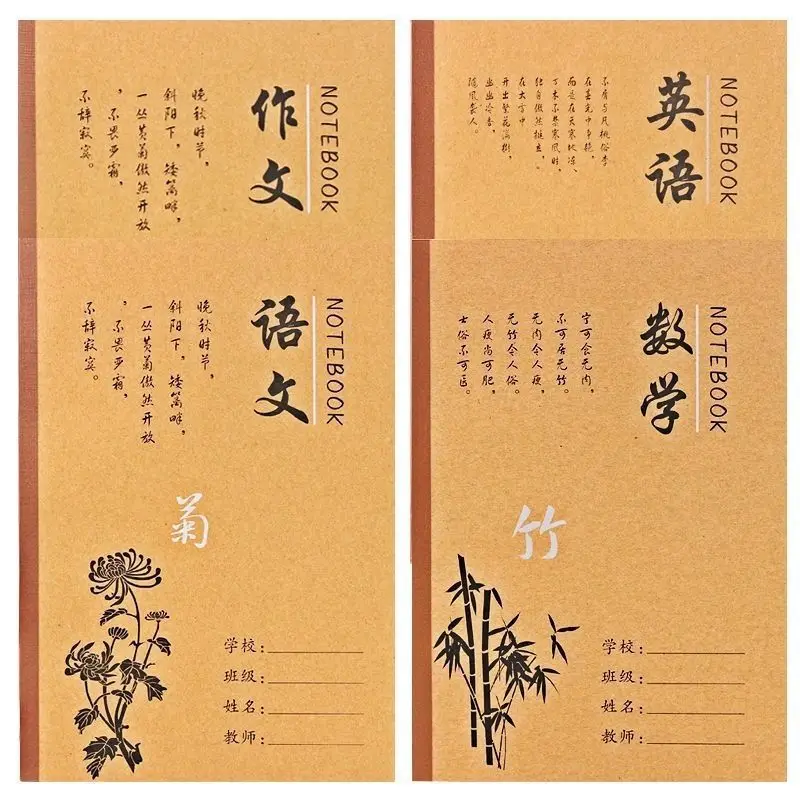 NOTEBOOK
作文
晚秋时节,
斜阳下,矮篱畔,
一丛黄菊傲然开放
,不畏严霜,
不辞寂寞。
NOTEBOOK
英语
不屑与凡桃俗李
在春光中争艳,
而是在天寒地冻、
万木不禁寒风时,
独自傲然挺立,
在大雪中
开出繁花满树,
幽幽冷香,
随风袭人。
NOTEBOOK
语文
晚秋时节,
斜阳下,矮篱畔,
一丛黄菊傲然开放
,不畏严霜,
不辞寂寞。
菊
学校:
班级:
姓名:
教师:
NOTEBOOK
数学
宁可食无肉,
不可居无竹。
无肉令人瘦,
无竹令人俗。
人瘦尚可肥,
士俗不可医。
竹
学校:
班级:
姓名:
教师: